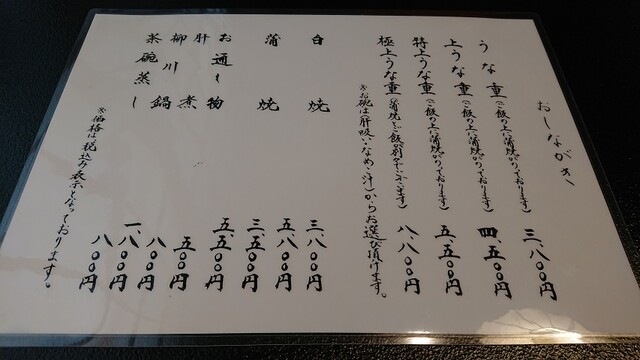 おしながき
うな重(ご飯の上に蒲焼がのっております) 三、八〇〇円
上うな重(ご飯の上に蒲焼がのっております) 四、五〇〇円
特上うな重(ご飯の上に蒲焼がのっております) 五、五〇〇円
極上うな重(蒲焼とご飯が別々でございます) 八、八〇〇円
※お碗は(肝吸い・なめこ汁)からお選び頂けます。
白焼 三、八〇〇円
五、八〇〇円
蒲焼 三、五〇〇円
五、五〇〇円
お通し物 五〇〇円
肝煮 八〇〇円
柳川鍋 一、八〇〇円
茶碗蒸し 八〇〇円
※価格は税込み表示となっております。